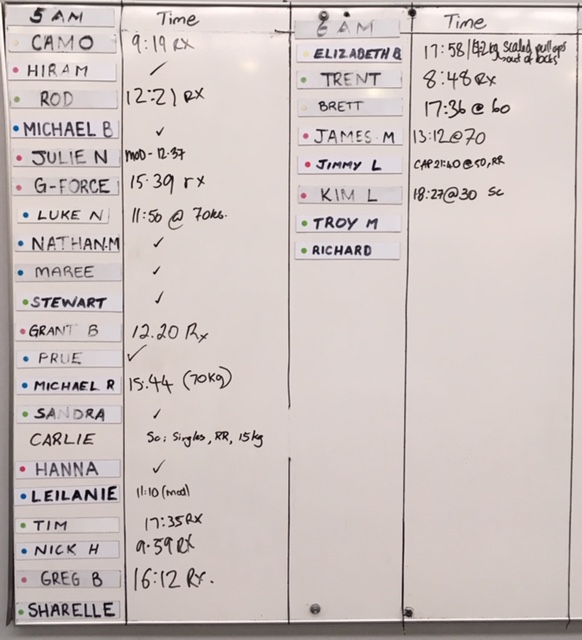 5 AM Time
CAMO 9:19 RX
HIRAM ✓
ROD 12:21 RX
MICHAEL B ✓
JULIE N mod - 12:37
G-FORCE 15.39 rx
LUKE N 11:50 @ 70kg.
NATHAN.M ✓
MAREE ✓
STEWART ✓
GRANT B 12.20 Rx
PRUE ✓
MICHAEL R 15:44 (70kg)
SANDRA ✓
CARLIE Sc; Singles, RR, 15kg
HANNA ✓
LEILANIE 11:10 (mod)
TIM 17:35 RX
NICK H 9.59 RX
GREG B 16:12 Rx.
SHARELLE
6 AM Time
ELIZABETH B 17:58 / scaled pull ups
out of
TRENT 8:48 Rx
BRETT 17:36 @ 60
JAMES M 13:12 @ 70
JIMMY L CAP 21:40 @ 50, RR
KIM L 18:27 @ 30 Sc
TROY M
RICHARD